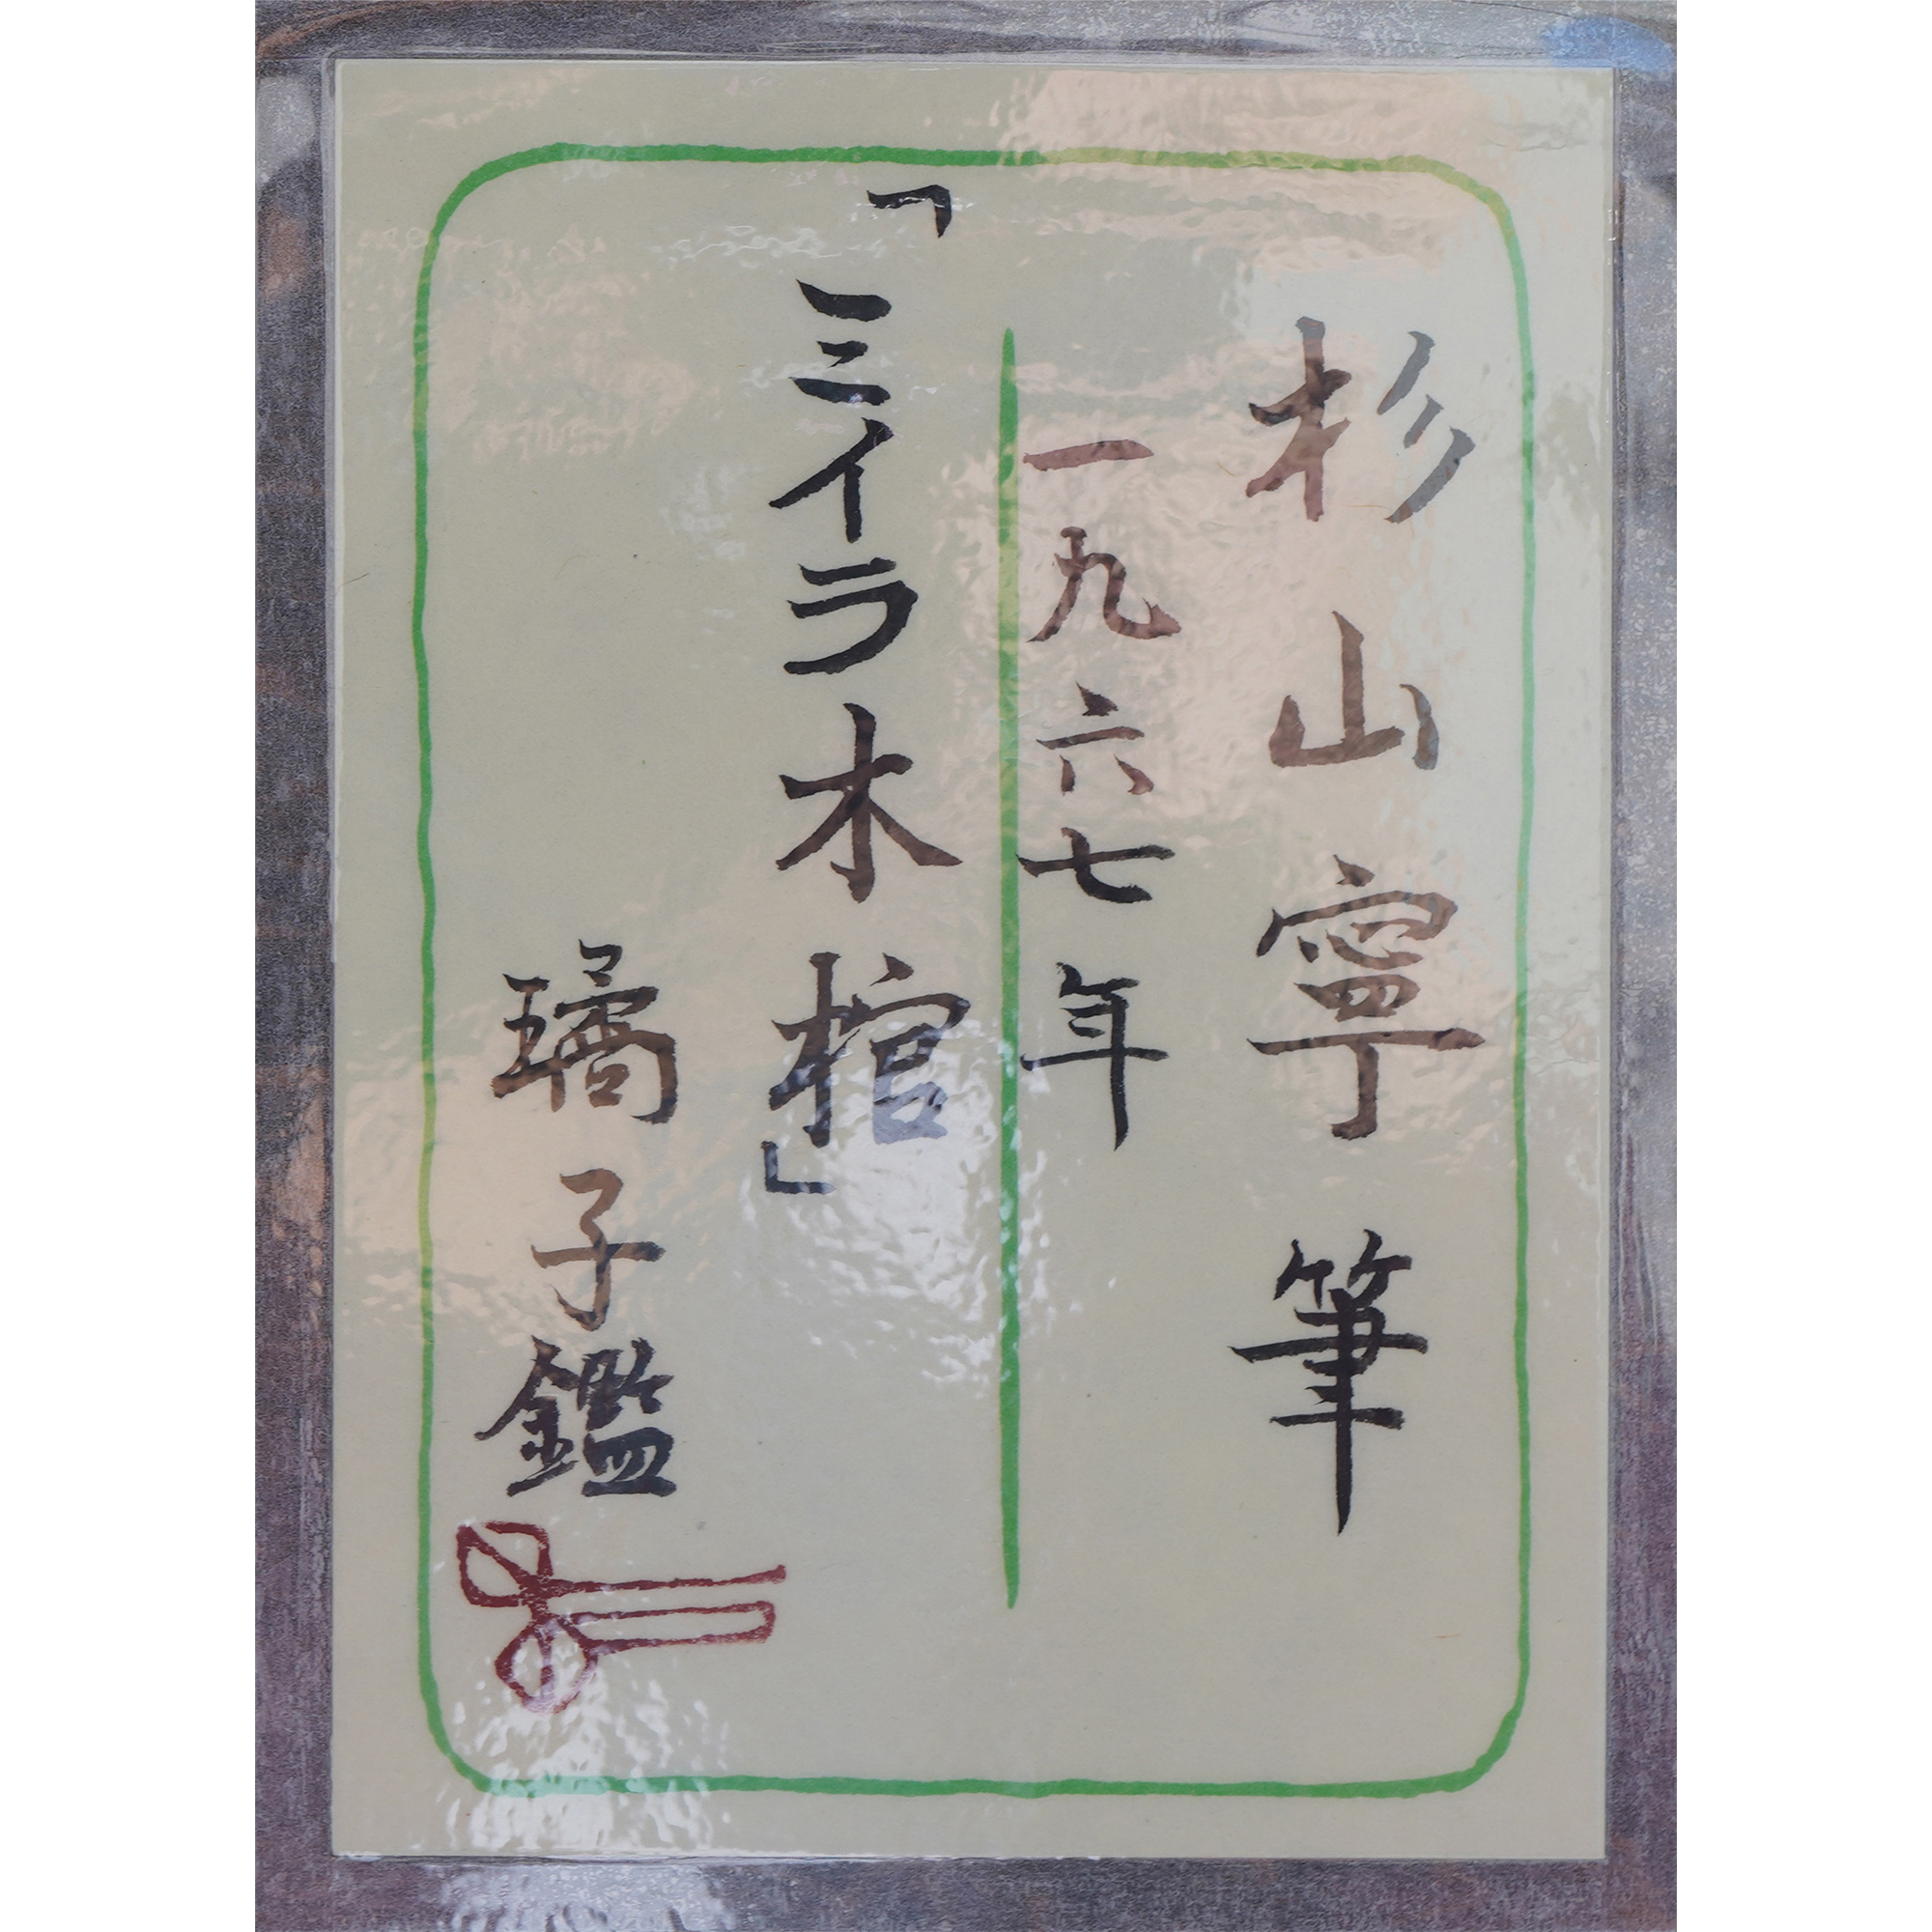 杉山寧 筆
一九六七年
「ミイラ木棺」
璚子鑑